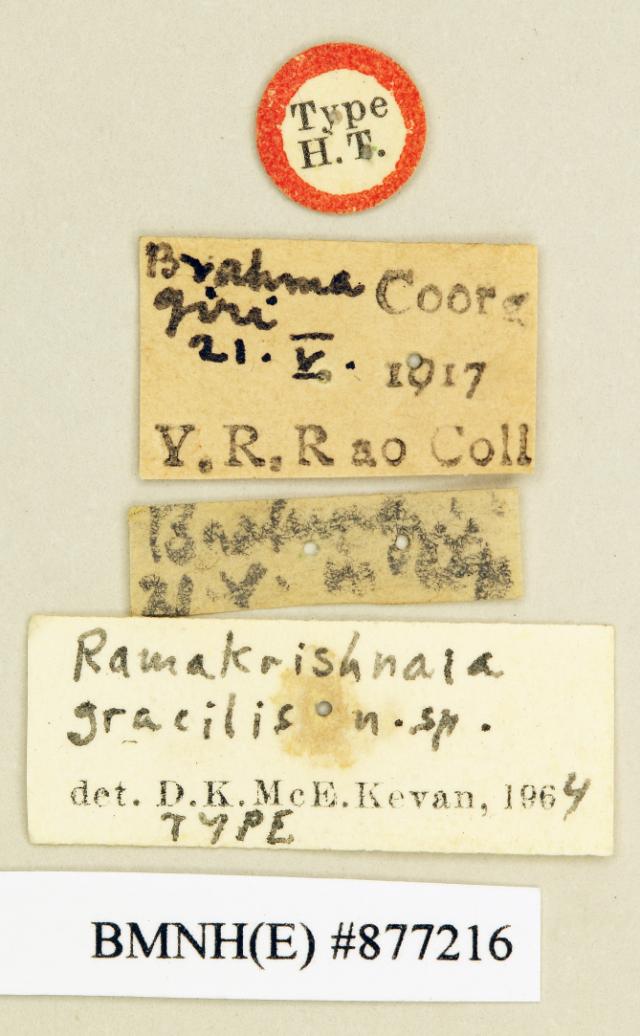 Type
H.T.
Brahma Coorg
giri
21. V. 1917
Y. R. Rao Coll
21. V.
Ramakrishnaia
gracilis n. sp.
det. D. K. McE. Kevan, 1964
TYPE
BMNH(E) #877216